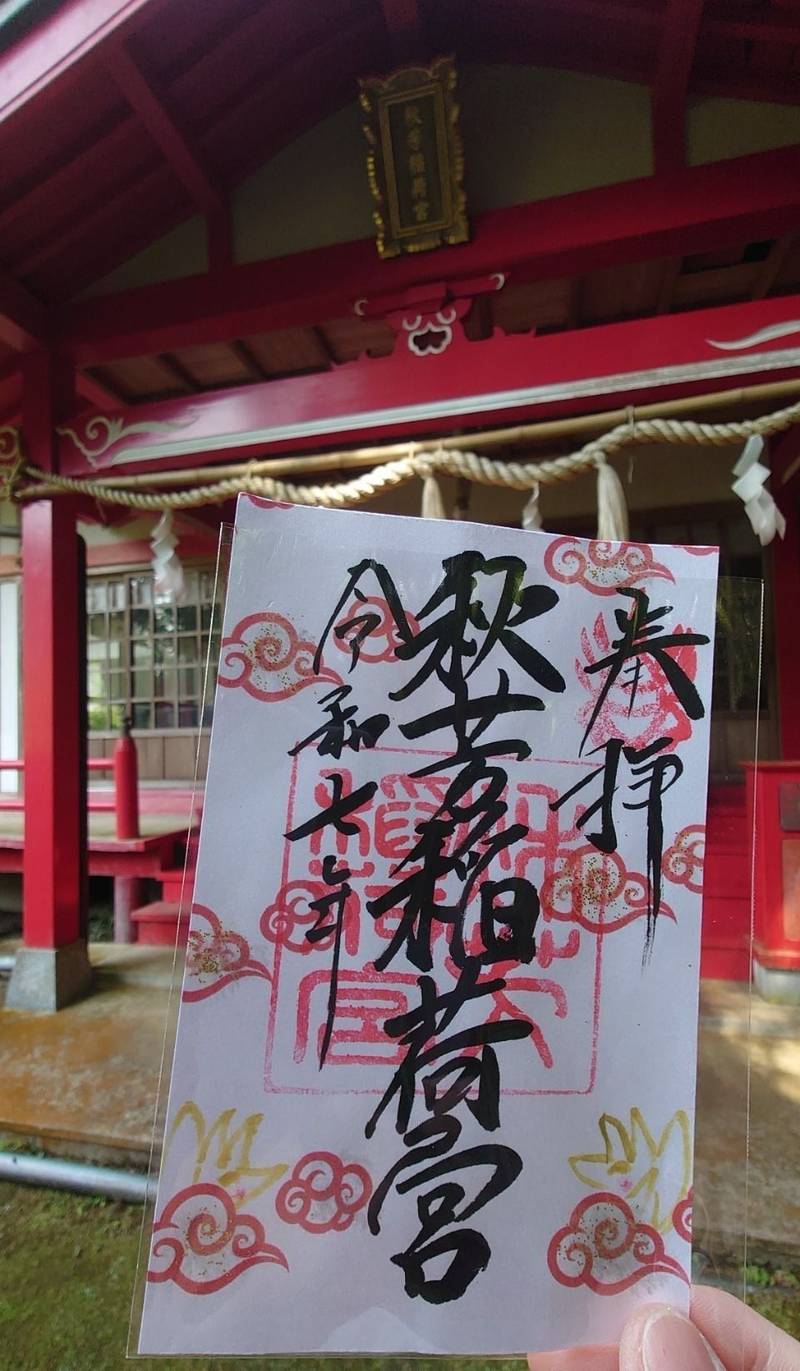 秋芳稲荷宮
奉拝
秋芳稲荷宮
令和七年